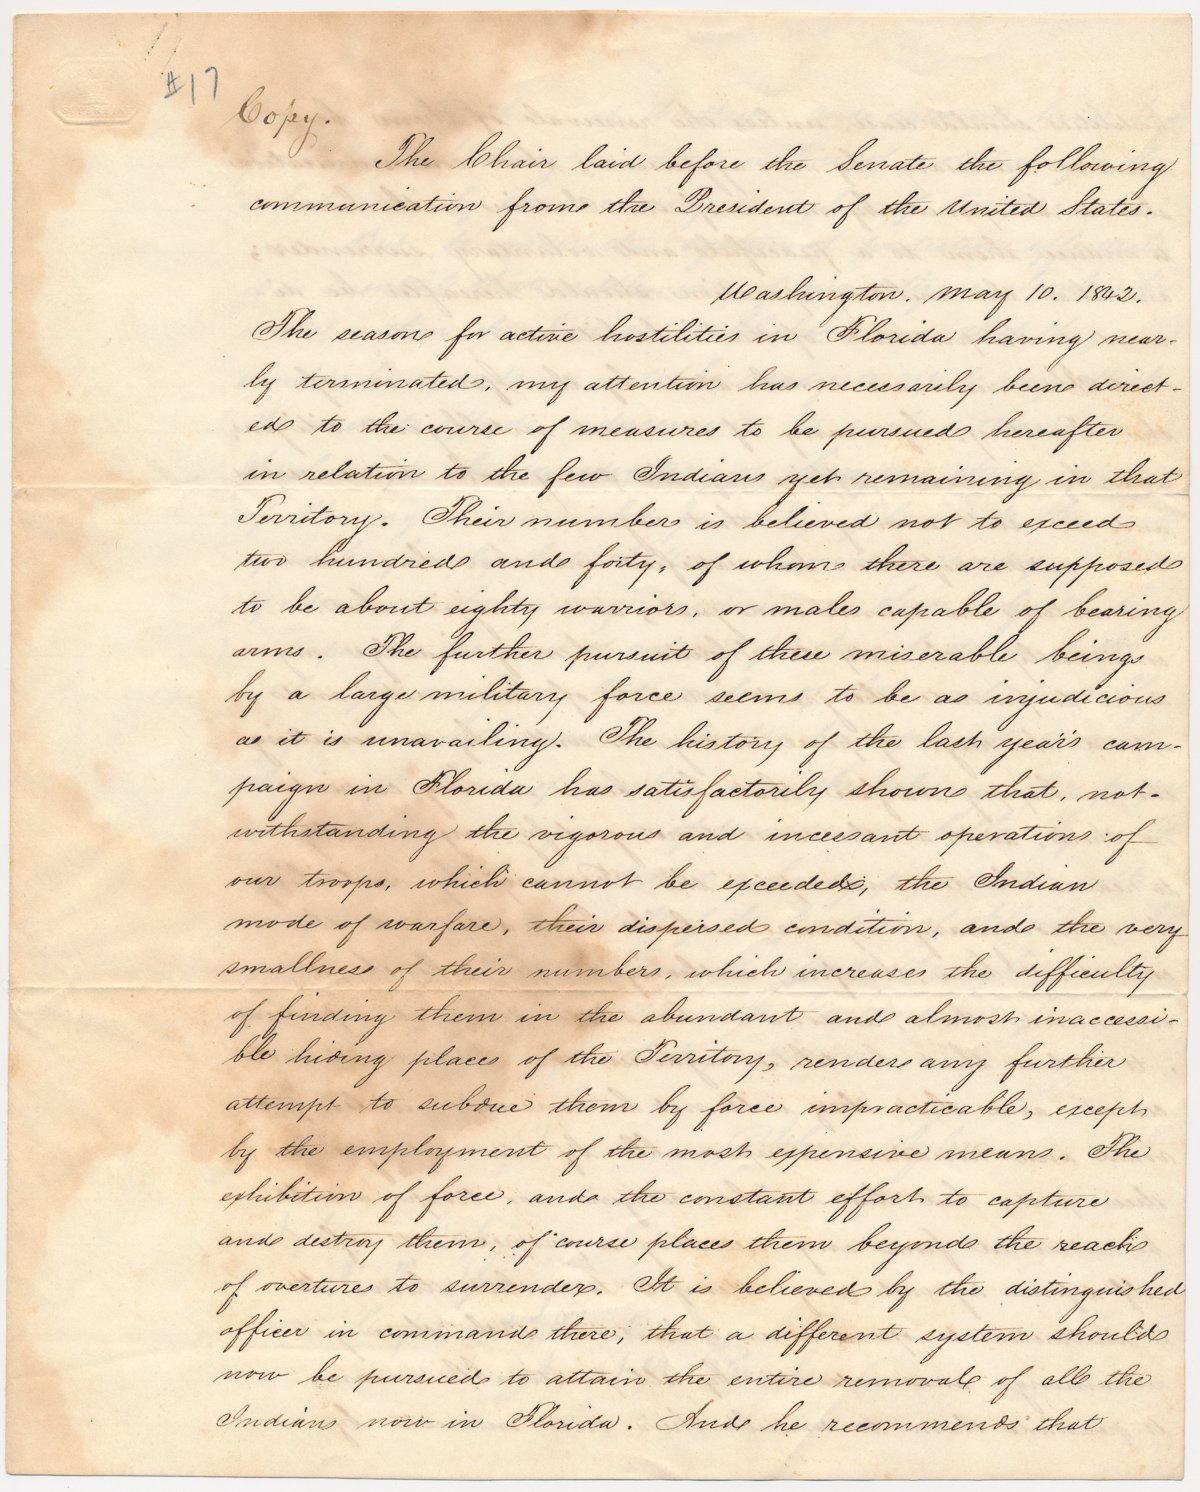 #17
Copy.
The Chair laid before the Senate the following
communication from the President of the United States.
Washington. May 10. 1842.
The season for active hostilities in Florida having near-
ly terminated, my attention has necessarily been direct-
ed to the course of measures to be pursued hereafter
in relation to the few Indians yet remaining in that
Territory. Their numbers is believed not to exceed
two hundred and forty, of whom there are supposed
to be about eighty warriors, or males capable of bearing
arms. The further pursuit of these miserable beings
by a large military force seems to be as injudicious
as it is unavailing. The history of the last year's cam-
paign in Florida has satisfactorily shown that, not-
withstanding the vigorous and incessant operations of
our troops, which cannot be exceeded, the Indian
mode of warfare, their dispersed condition, and the very
smallness of their numbers, which increases the difficulty
of finding them in the abundant and almost inaccessi-
ble hiding places of the Territory, renders any further
attempt to subdue them by force impracticable, except
by the employment of the most expensive means. The
exhibition of force, and the constant effort to capture
and destroy them, of course places them beyond the reach
of overtures to surrender. It is believed by the distinguished
officer in command there, that a different system should
now be pursued to attain the entire removal of all the
Indians now in Florida. And he recommends that